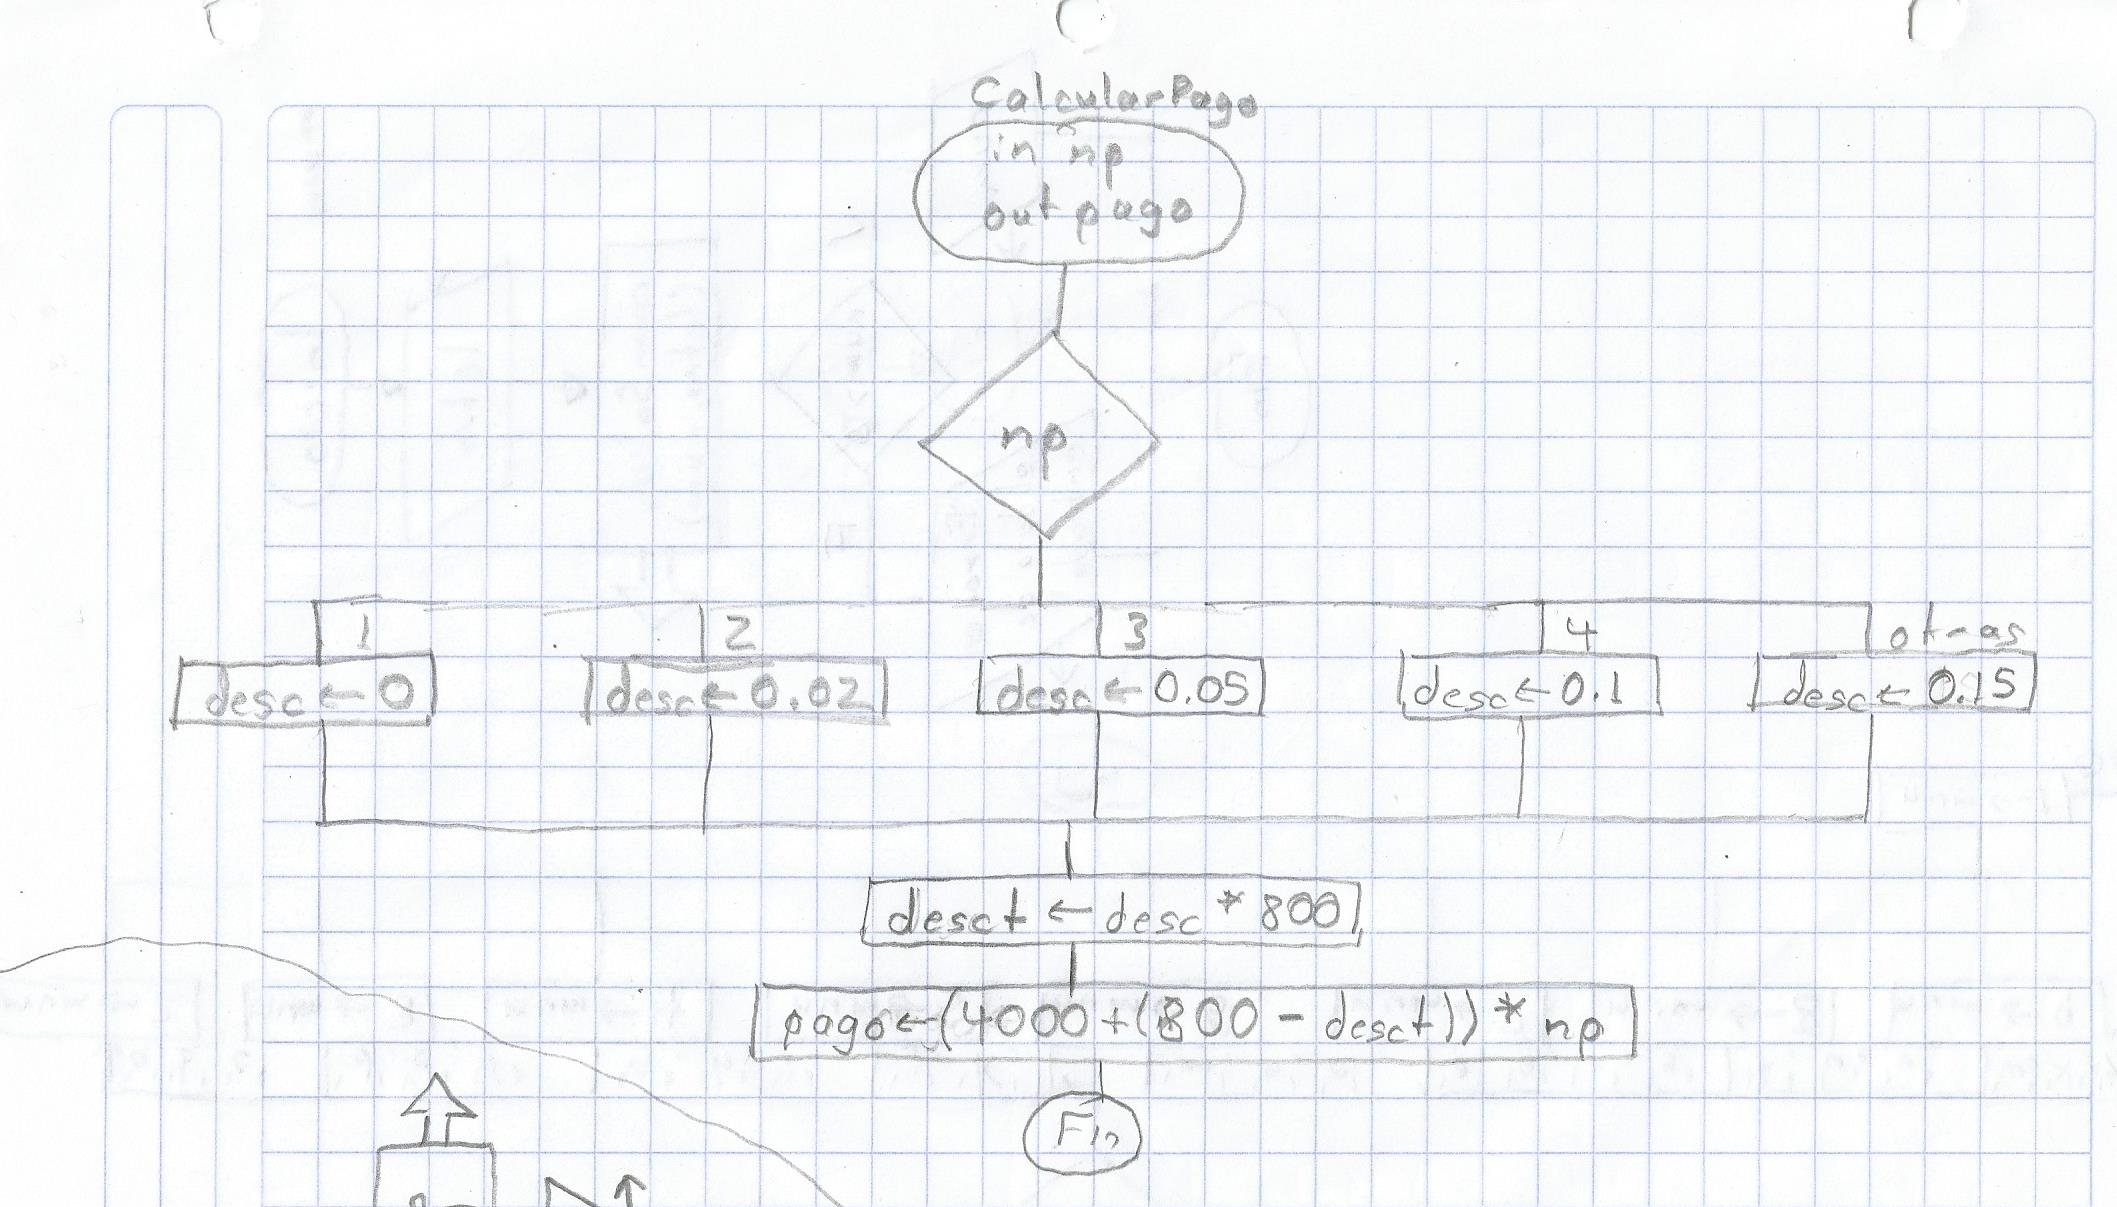 CalcularPago
in np
out pago
np
1
2
3
4
otras
desc ← 0
desc ← 0.02
desc ← 0.05
desc ← 0.1
desc ← 0.15
desct ← desc * 800
pago ← (4000 + (800 - desct)) * np
Fin